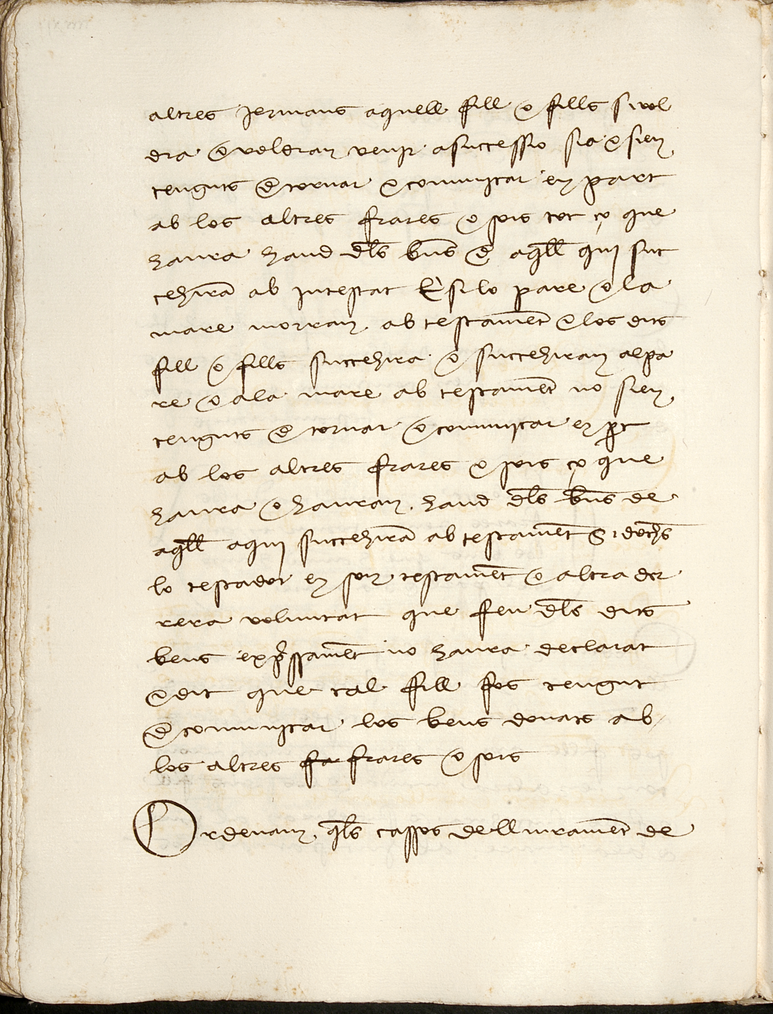 altres jermans aquell fill o fills si vol
dra o voldran venir a successio sia o sien
tenguts de tornar e comunicar en part
ab los altres frares o sors tot ço que
haura haud dls bns de aqll qui suc
cehira ab intestat E si lo pare o la
mare morran ab testament e los dits
fill o fills succehira o succehiran al pa
re o a la mare ab testamet no sien
tenguts de tornar o comunicar en pt
ab los altres frares o sors ço que
haura o hauran haud dls bns de
aqll a qui succehira ab testamet Si donchs
lo testador en son testamet o altra der
rera voluntat que feu dls dits
bens expssamet no haura declarat
e dit que tal fill fos tengut
de comunicar los bens donats ab
los altres far frares o sors
Ordenam qls cassos de lliuramet de